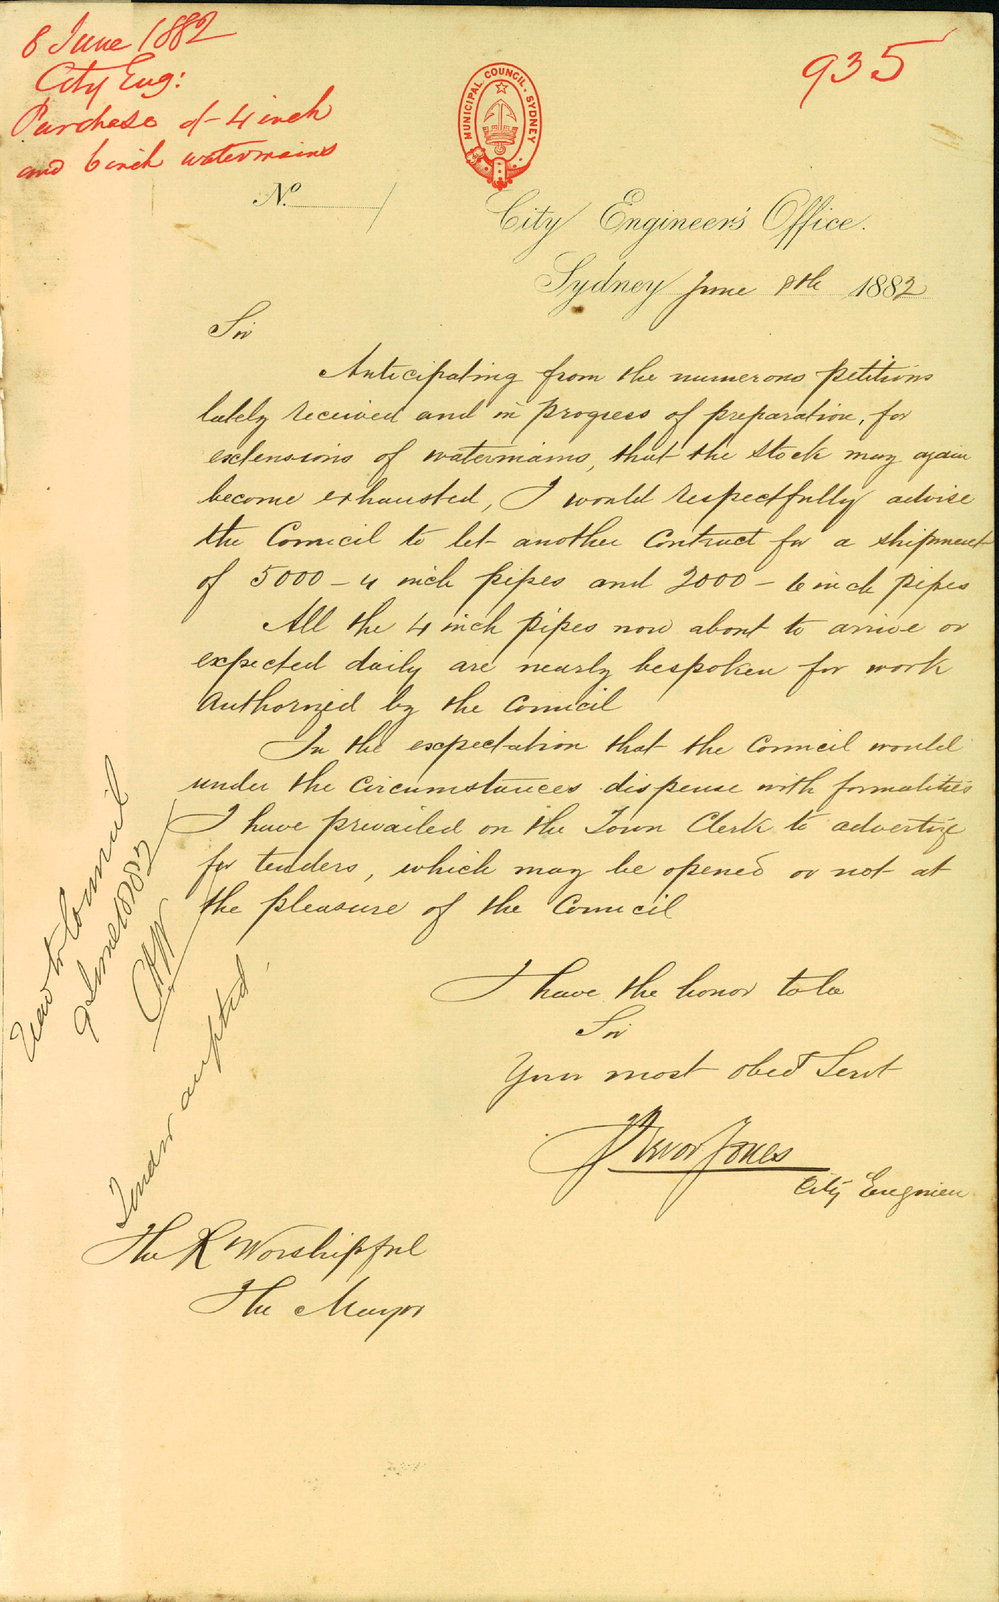 8 June 1882
City Eng:
Purchase of 4 inch
and 6 inch watermains
935
MUNICIPAL COUNCIL · SYDNEY
No.
City Engineer's Office.
Sydney June 8th 1882
Sir
Anticipating from the numerous petitions
lately received and in progress of preparation, for
extensions of watermains, that the stock may again
become exhausted, I would respectfully advise
the Council to let another Contract for a shipment
of 5000 - 4 inch pipes and 2000 - 6 inch pipes
All the 4 inch pipes now about to arrive or
expected daily are nearly bespoken for work
Authorized by the Council
In the expectation that the Council would
under the Circumstances dispense with formalities
I have prevailed on the Town Clerk to advertize
for tenders, which may be opened or not at
the pleasure of the Council
I have the honor to be
Sir
Your most obed Servt
Trevor Jones
City Engineer
The R Worshipful
The Mayor
to Council
9 June 1882
Tender accepted